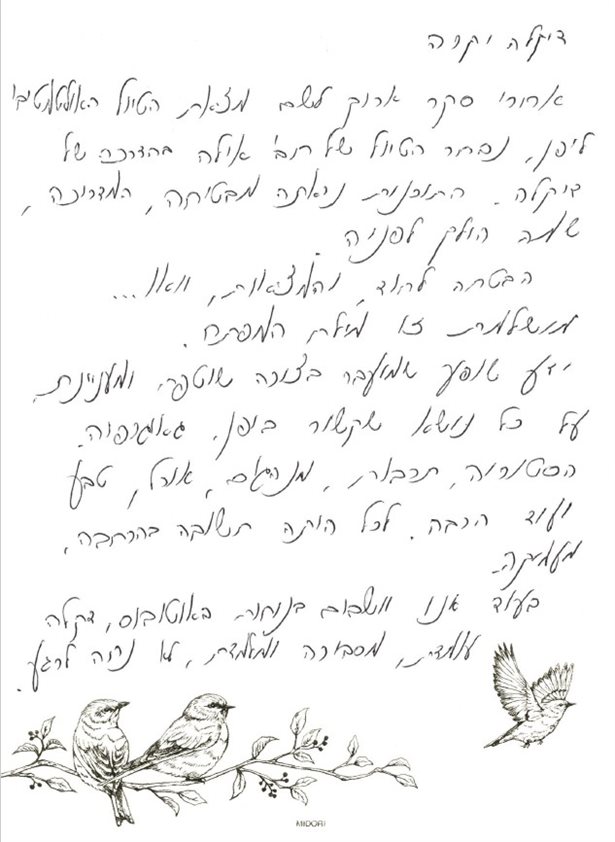 דיקלה יקרה
אחרי סקר ארוך לשם מציאת הטיול האולטמטיבי
ליפן, נבחר הטיול של חב' אילה בהדרכה של
דיקלה. התוכנית נראתה מבטיחה, המדריכה,
שמה הולך לפניה.
הבטחה לחוד, והמציאות, וואו...
מושלמת זו מילת המפתח.
ידע שופע שמועבר בצורה שוטפת, ומעניינת,
על כל נושא שקשור ביפן, גאוגרפיה,
הסטוריה, תרבות, מנהגים, אוכל, טבע
ועוד הרבה. לכל היתה תשובה בהרחבה,
מעמיקה.
בעוד אנו יושבים בנוחות באוטובוס, דקלה
עומדת, מסבירה ומלמדת, לא נחה לרגע.
MIDORI